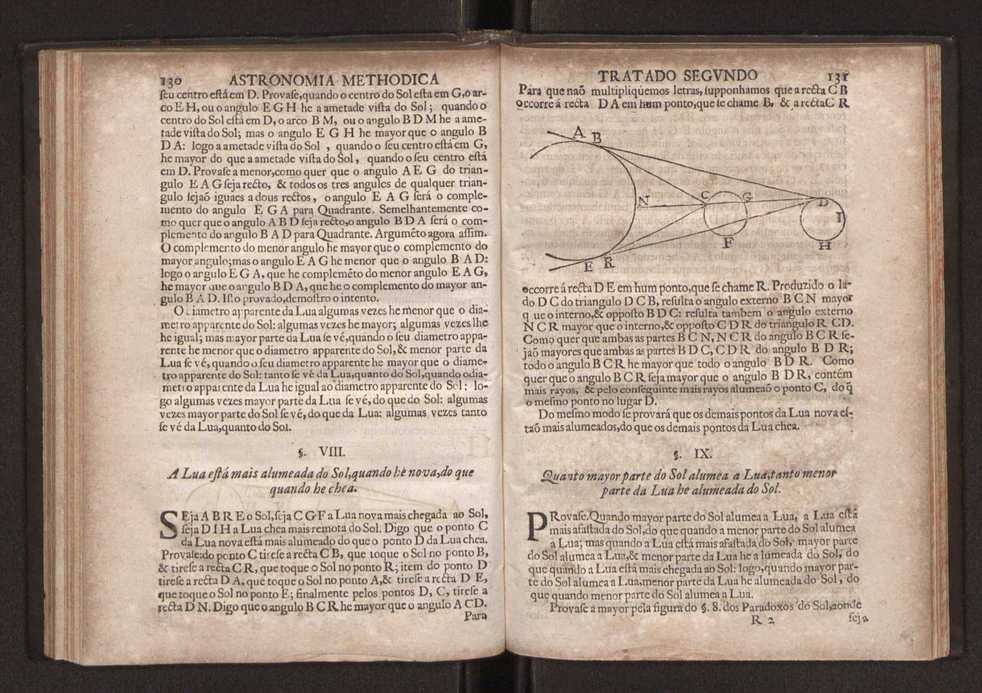 130 ASTRONOMIA METHODICA
seu centro está em D. Provase, quando o centro do Sol esta em G, o ar-
co E H, ou o angulo E G H he a ametade vista do Sol; quando o
centro do Sol está em D, o arco B M, ou o angulo B D M he a ame-
tade vista do Sol; mas o angulo E G H he mayor que o angulo B
D A: logo a ametade vista do Sol, quando o seu centro está em G,
he mayor do que a ametade vista do Sol, quando o seu centro está
em D. Provase a menor, como quer que o angulo A E G do trian-
gulo E A G seja recto, & todos os tres angules de qualquer trian-
gulo sejaõ iguaes a dous rectos, o angulo E A G será o comple-
mento do angulo E G A para Quadrante. Semelhantemente co-
mo quer que o angulo A B D seja recto, o angulo B D A será o com-
plemento do angulo B A D para Quadrante. Argumẽto agora assim.
O complemento do menor angulo he mayor que o complemento do
mayor angulo; mas o angulo E A G he menor que o angulo B A D:
logo o angulo E G A, que he complemẽto do menor angulo E A G,
he mayor que o angulo B D A, que he o complemento do mayor an-
gulo B A D. Isto provado, demostro o intento.
O diametro apparente da Lua algumas vezes he menor que o dia-
metro apparente do Sol: algumas vezes he mayor; algumas vezes lhe
he igual; mas mayor parte da Lua se vé, quando o seu diametro appa-
rente he menor que o diametro apparente do Sol, & menor parte da
Lua se vé, quando o seu diametro apparente he mayor que o diame-
tro apparente do Sol: tanto se vé da Lua, quanto do Sol, quando o dia-
metro apparente da Lua he igual ao diametro apparente do Sol; lo-
go algumas vezes mayor parte da Lua se vé, do que do Sol: algumas
vezes mayor parte do Sol se vé, do que da Lua: algumas vezes tanto
se vé da Lua, quanto do Sol.
§. VIII.
A Lua está mais alumeada do Sol, quando he nova, do que
quando he chea.
SEja A B R E o Sol, seja C G F a Lua nova mais chegada ao Sol,
seja D I H a Lua chea mais remota do Sol. Digo que o ponto C
da Lua nova está mais alumeado do que o ponto D da Lua chea.
Provase: do ponto C tirese a recta C B, que toque o Sol no ponto B,
& tirese a recta C R, que toque o Sol no ponto R; item do ponto D
tirese a recta D A, que toque o Sol no ponto A, & tirese a recta D E,
que toque o Sol no ponto E; finalmente pelos pontos D, C, tirese a
recta D N. Digo que o angulo B C R he mayor que o angulo A CD.
Para
TRATADO SEGVNDO 131
Para que naõ multipliquemos letras, supponhamos que a recta C B
occorre á recta D A em hum ponto, que se chame B, & a recta C R
A B
N C G D I
F H
E R
occorre á recta D E em hum ponto, que se chame R. Produzido o la-
do D C do triangulo D C B, resulta o angulo externo B C N mayor
que o interno, & opposto B D C: resulta tambem o angulo externo
N C R mayor que o interno, & opposto C D R do triangulo R CD.
Como quer que ambas as partes B C N, N C R do angulo B C R se-
jaõ mayores que ambas as partes B D C, C D R do angulo B D R;
todo o angulo B C R he mayor que todo o angulo B D R. Como
quer que o angulo B C R seja mayor que o angulo B D R, contém
mais rayos, & pelo conseguinte mais rayos alumeaõ o ponto C, do q̃
o mesmo ponto no lugar D.
Do mesmo modo se provará que os demais pontos da Lua nova es-
taõ mais alumeados, do que os demais pontos da Lua chea.
§. IX.
Quanto mayor parte do Sol alumea a Lua, tanto menor
parte da Lua he alumeada do Sol.
PRovase. Quando mayor parte do Sol alumea a Lua, a Lua está
mais afastada do Sol, do que quando a menor parte do Sol alumea
a Lua; mas quando a Lua está mais afastada do Sol, mayor parte
do Sol alumea a Lua, & menor parte da Lua he alumeada do Sol, do
que quando a Lua está mais chegada ao Sol: logo, quando mayor par-
te do Sol alumea a Lua, menor parte da Lua he alumeada do Sol, do
que quando menor parte do Sol alumea a Lua.
Provase a mayor pela figura do §. 8. dos Paradoxos do Sol, aonde
R 2 seja